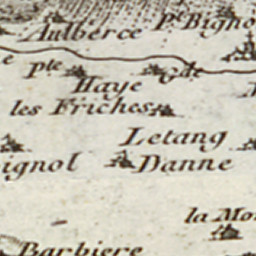 Aulberce
Pt Bigno
e
pte
gde
Haye
les Friches
Letang
ignol
Danne
la Mo
Barbiere